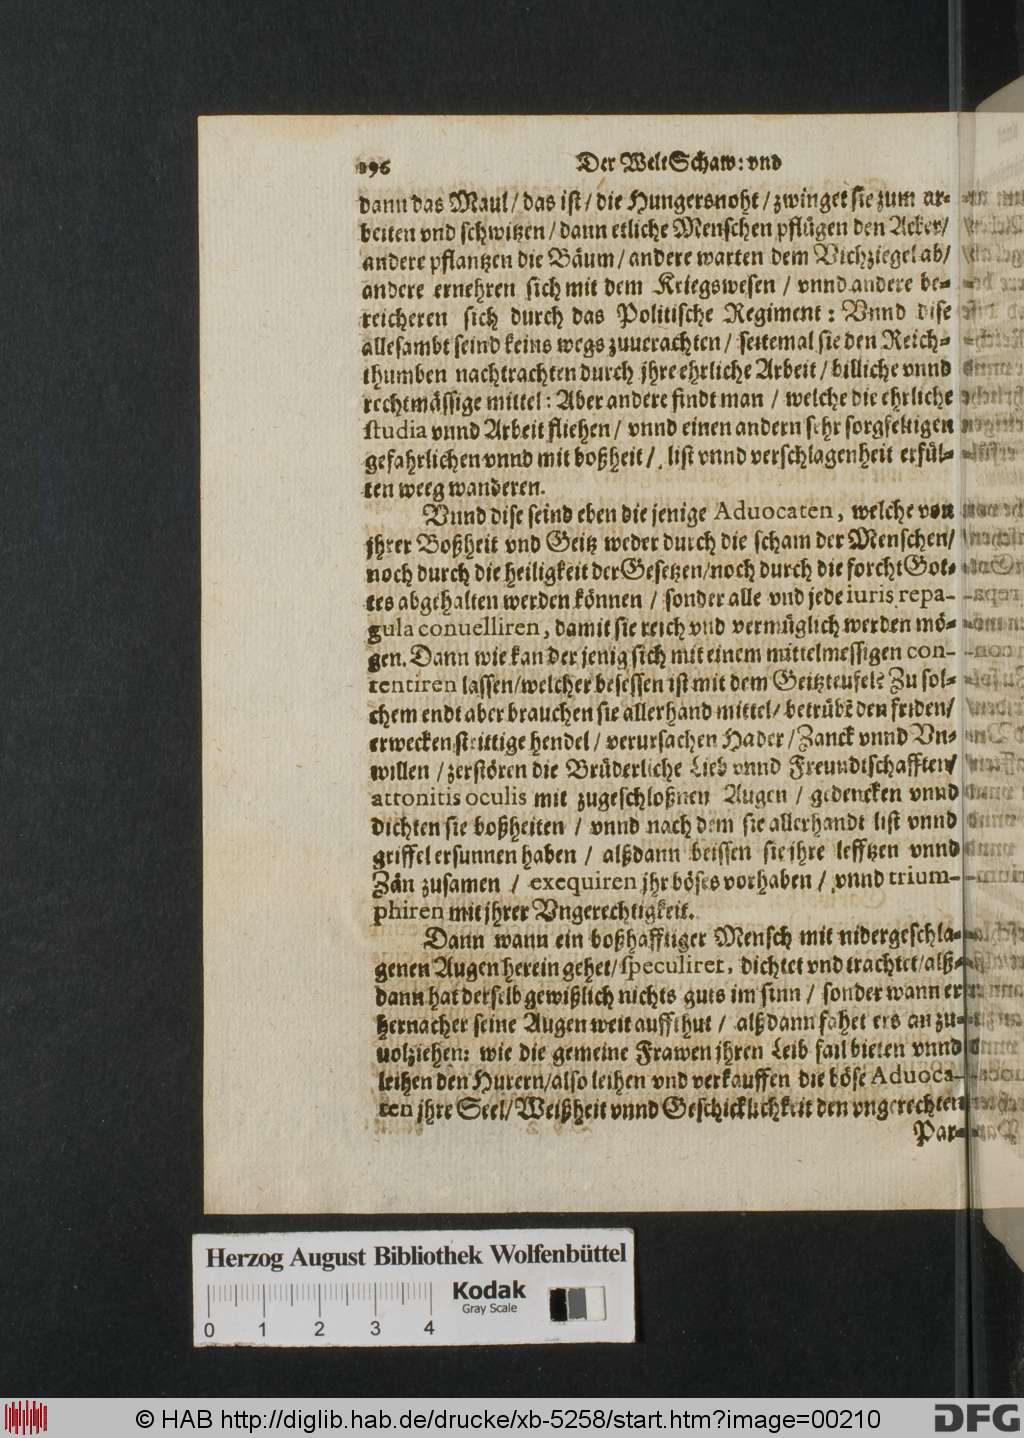 196 Der Welt Schaw: vnd
dann das Maul / das ist / die Hungersnoht / zwinget sie zum ar-
beiten vnd schwitzen / dann etliche Menschen pflügen den Acker /
andere pflantzen die Bäum / andere warten dem Vichziegel ab /
andere ernehren sich mit dem Kriegswesen / vnnd andere be-
reicheren sich durch das Politische Regiment : Vnnd dise
allesambt seind keins wegs zuuerachten / seitemal sie den Reich-
thumben nachtrachten durch jhre ehrliche Arbeit / billiche vnnd
rechtmässige mittel : Aber andere findt man / welche die ehrliche
studia vnnd Arbeit fliehen / vnnd einen andern sehr sorgfeltigen
gefahrlichen vnnd mit boßheit / list vnnd verschlagenheit erfül-
ten weeg wanderen.
Vnnd dise seind eben die jenige Aduocaten, welche von
jhrer Boßheit vnd Geitz weder durch die scham der Menschen /
noch durch die heiligkeit der Gesetzen / noch durch die forcht Got-
tes abgehalten werden können / sonder alle vnd jede iuris repa-
gula conuelliren, damit sie reich vnd vermüglich werden mö-
gen. Dann wie kan der jenig sich mit einem mittelmessigen con-
tentiren lassen / welcher besessen ist mit dem Geitzteufel? Zu sol-
chem endt aber brauchen sie allerhand mittel / betrübē den friden /
erwecken strittige hendel / verursachen Hader / Zanck vnnd Vn-
willen / zerstören die Brüderliche Lieb vnnd Freundtschafften /
attonitis oculis mit zugeschloßnen Augen / gedencken vnnd
dichten sie boßheiten / vnnd nach dem sie allerhandt list vnnd
griffel ersunnen haben / alßdann beissen sie jhre lefftzen vnnd
Zän zusamen / exequiren jhr böses vorhaben / vnnd trium-
phiren mit jhrer Vngerechtigkeit.
Dann wann ein boßhafftiger Mensch mit nidergeschla-
genen Augen herein gehet / speculiret, dichtet vnd trachtet / alß-
dann hat derselb gewißlich nichts guts im sinn / sonder wann er
hernacher seine Augen weit auffthut / alßdann fahet ers an zu-
uolziehen: wie die gemeine Frawen jhren Leib fail bieten vnnd
leihen den Hurern / also leihen vnd verkauffen die böse Aduoca-
ten jhre Seel / Weißheit vnnd Geschicklichkeit den vngerechten
Par-
Herzog August Bibliothek Wolfenbüttel
Kodak
Gray Scale
0 1 2 3 4
© HAB http://diglib.hab.de/drucke/xb-5258/start.htm?image=00210
DFG